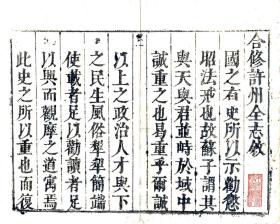 合修許州全志敘
國之有史所以示勸懲
昭法戒也故蘇子謂其
與天與君並時於域中
誠重之也易重乎爾誠
以上之政治人才與下
之民生風俗犖犖簡端
使載者足以勸讀者足
以興而觀摩之道寓焉
此史之所以重也而復